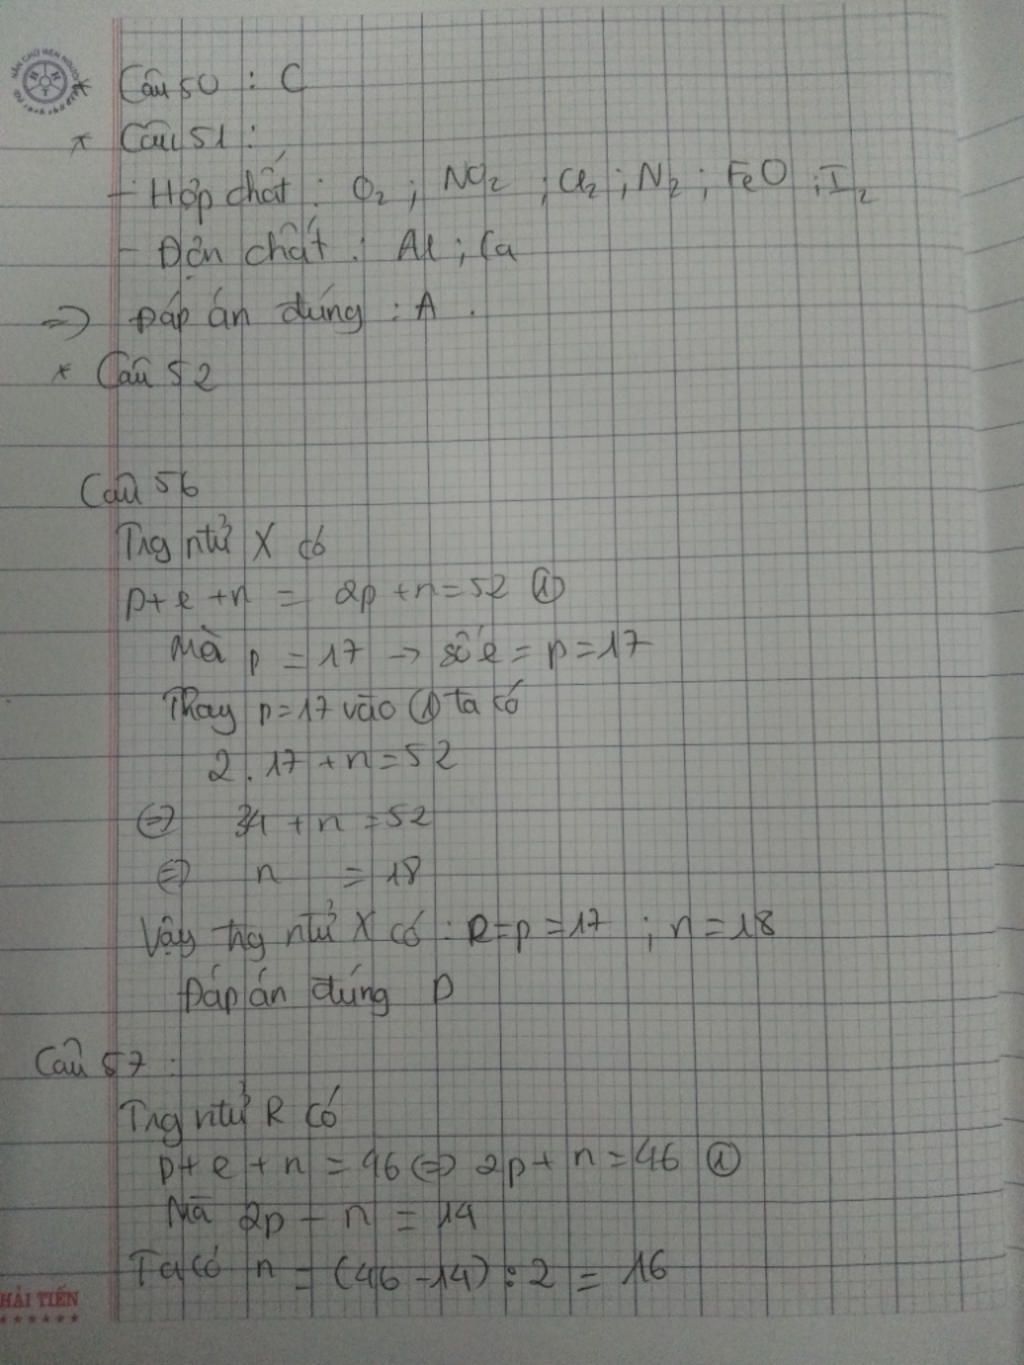 * Câu 50 : C
* Câu 51 :
- Hợp chất : O₂ ; NO₂ ; Cl₂ ; N₂ ; FeO ; I₂
- Đơn chất : Al ; Ca
=> Đáp án đúng : A .
* Câu 52
Câu 56
Trg ntử X có
p + e + n = 2p + n = 52 ①
Mà p = 17 → số e = p = 17
Thay p = 17 vào ① ta có
2 . 17 + n = 52
⇔ 34 + n = 52
⇔ n = 18
Vậy trg ntử X có : e = p = 17 ; n = 18
Đáp án đúng D
Câu 57 :
Trg ntử R có
p + e + n = 46 ⇔ 2p + n = 46 ①
Mà 2p - n = 14
Ta có n = (46 - 14) : 2 = 16
HẢI TIẾN